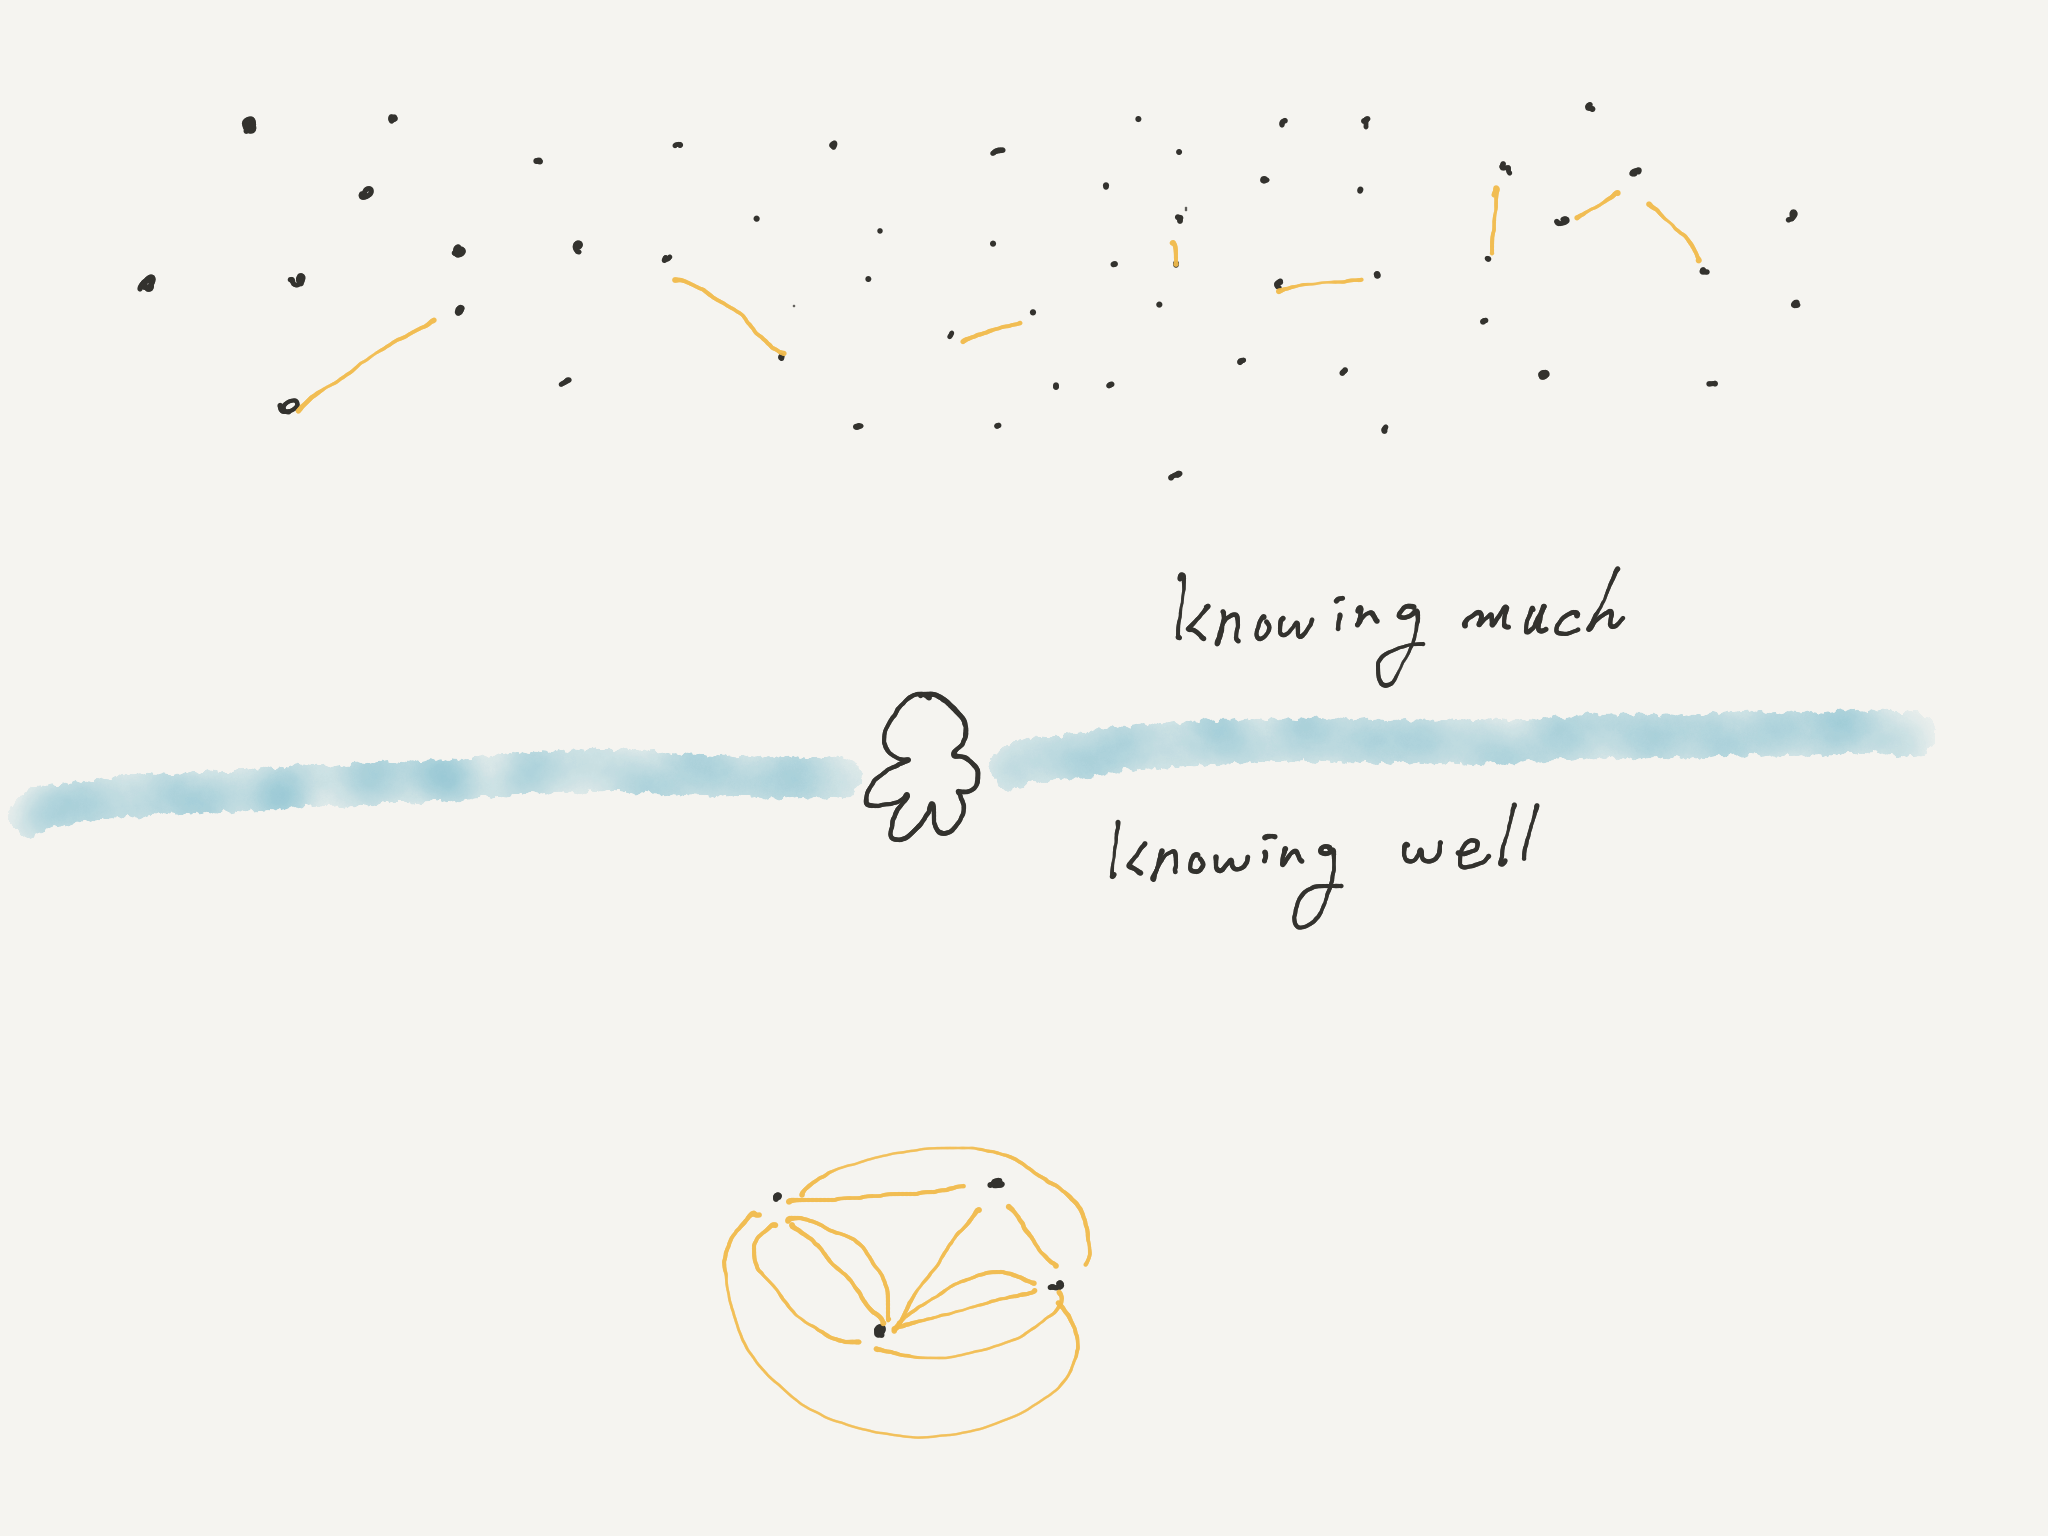 knowing much
knowing well